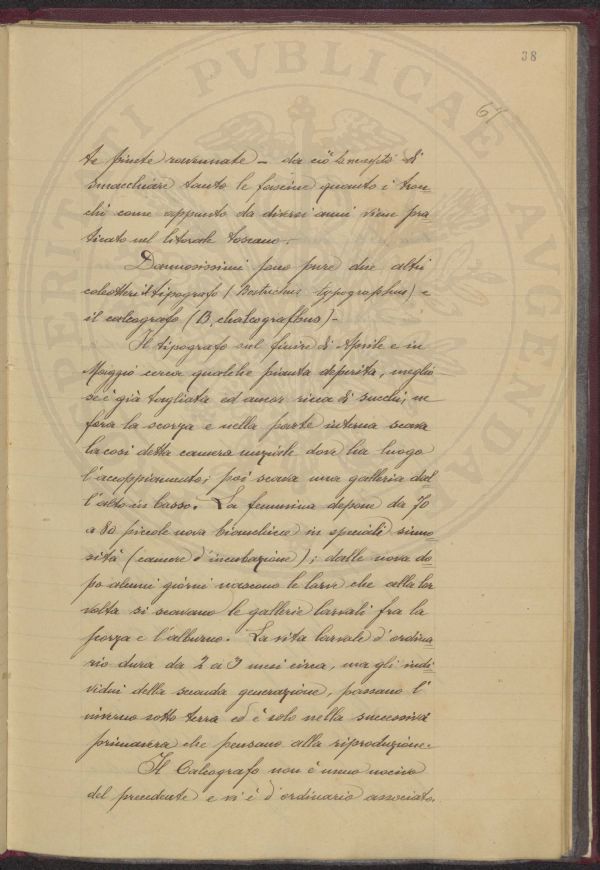 38
67
te pinete ravennate – da ciò la necessità di
smacchiare tanto le fascine quanto i tron
chi come appunto da diversi anni viene pra
ticato nel litorale toscano.
Dannosissimi sono pure due altri
coleotteri il tipografo (Bostrichus typographus) e
il calcografo (B. chalcographus) –
Il tipografo sul finire di Aprile e in
Maggio cerca qualche pianta deperita, meglio
se è già tagliata ed ancor ricca di succhi; ne
fora la scorza e nella parte interna scava
la così detta camera nuziale dove ha luogo
l'accoppiamento; poi scava una galleria dal
l'alto in basso. La femmina depone da 70
a 80 piccole uova bianchicce in speciali sinuo
sità (camere d'incubazione); dalle uova do
po alcuni giorni nascono le larve che alla lor
volta si scavano le gallerie larvali fra la
scorza e l'alburno. La vita larvale d'ordina
rio dura da 2 a 3 mesi circa, ma gli indi
vidui della seconda generazione, passano l'
inverno sotto terra ed è solo nella successiva
primavera che pensano alla riproduzione.
Il Calcografo non è meno nocivo
del precedente e vi è d'ordinario associato.
PVBLICAE
AVGENDAE